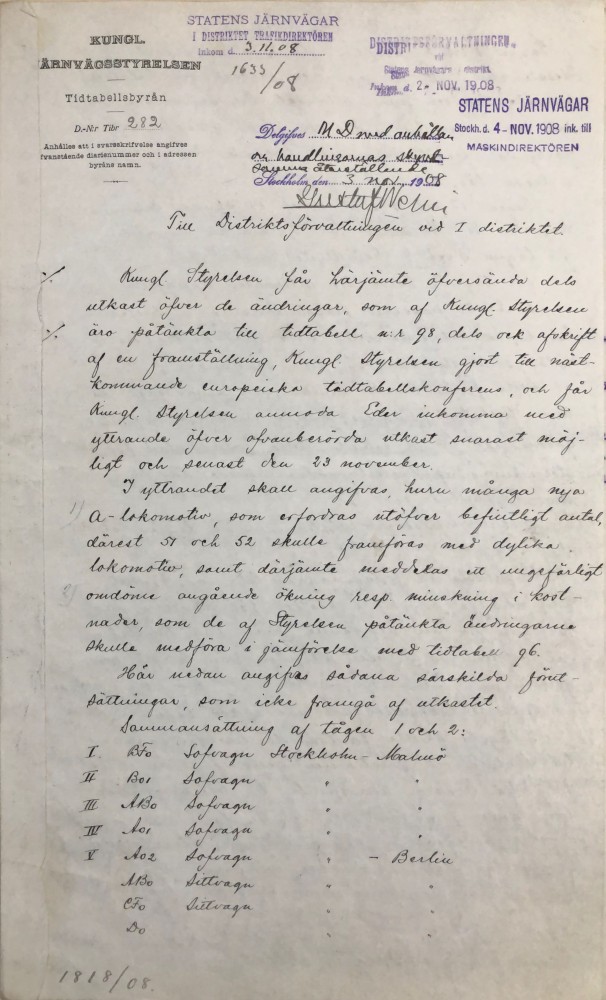 KUNGL.
JÄRNVÄGSSTYRELSEN
Tidtabellsbyrån
D.-N:r Tlbr 282
Anhålles att i svarsskrifvelse angifves
fvanstående diarienummer och i adressen
byråns namn.
STATENS JÄRNVÄGAR
I DISTRIKTET TRAFIKDIREKTÖREN
inkom d. 3.11.08
1633/08
DISTRIKTSFÖRVALTNINGEN
vid
Statens Järnvägars distrikt.
d. 2 - NOV. 1908
STATENS JÄRNVÄGAR
Stockh. d. 4 - NOV. 1908 ink. till
MASKINDIREKTÖREN
Delgifves M D med anhållan
om handlingarnas skynd-
samma återställande
Stockholm den 3 nov. 1908
Till Distriktsförvaltningen vid I distriktet.
Kungl. Styrelsen får härjämte öfversända dels
utkast öfver de ändringar, som af Kungl. Styrelsen
äro påtänkta till tidtabell n:r 98, dels ock afskrift
af en framställning, Kungl. Styrelsen gjort till näst-
kommande europeiska tidtabellskonferens, och får
Kungl. Styrelsen anmoda Eder inkomma med
yttrande öfver ofvanberörda utkast snarast möj-
ligt och senast den 23 november.
I yttrandet skall angifvas, huru många nya
1) A-lokomotiv, som erfordras utöfver befintligt antal,
därest 51 och 52 skulle framföras med dylika
lokomotiv, samt därjämte meddelas ett ungefärligt
2) omdöme angående ökning resp. minskning i kost-
nader, som de af Styrelsen påtänkta ändringarne
skulle medföra i jämförelse med tidtabell 96.
Här nedan angifves sådana särskilda förut-
sättningar, som icke framgå af utkastet.
Sammansättning af tågen 1 och 2:
I BFo Sofvagn Stockholm - Malmö
II Bo1 Sofvagn " "
III ABo Sofvagn " "
IV Ao1 Sofvagn " "
V Ao2 Sofvagn " - Berlin
ABo Sittvagn " "
CFo Sittvagn " "
Do " "
1818/08.